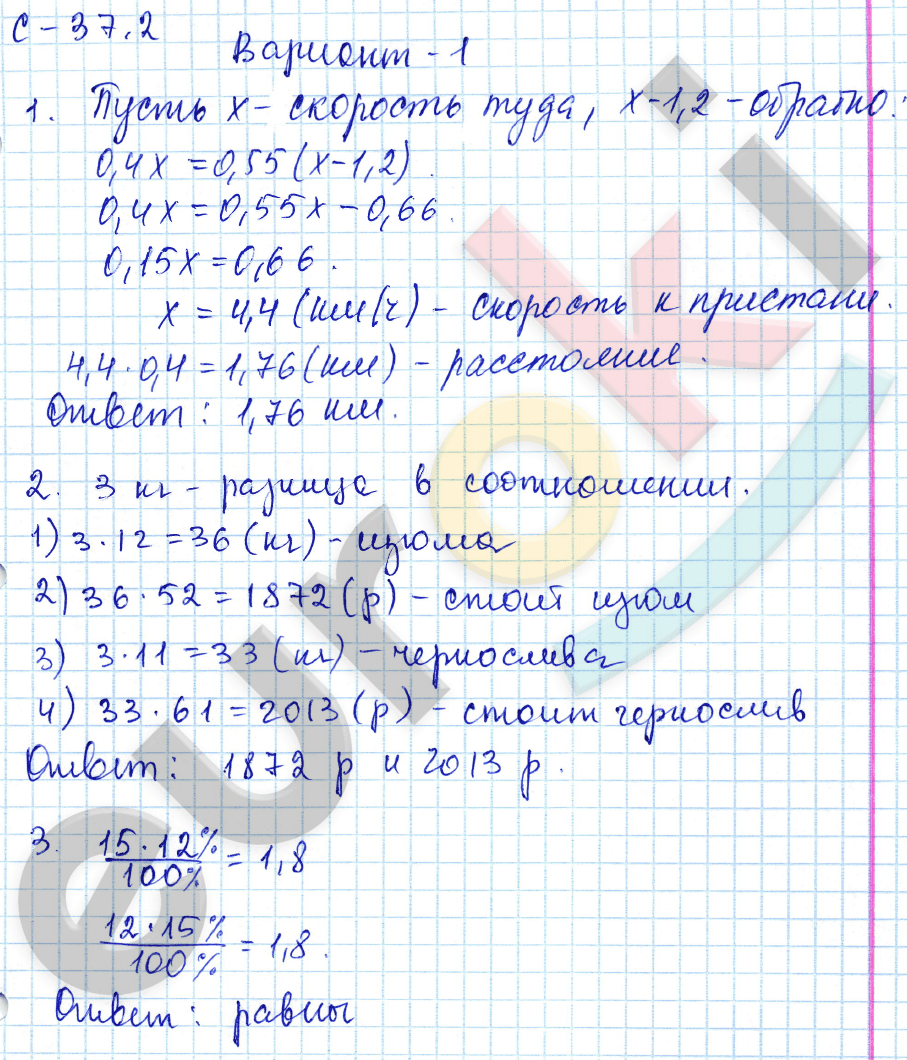 С - 37.2
Вариант - 1
1. Пусть х - скорость туда, х-1,2 - обратно.
0,4х = 0,55(х-1,2)
0,4х = 0,55х - 0,66.
0,15х = 0,66.
х = 4,4 (км/ч) - скорость к пристани.
4,4 · 0,4 = 1,76 (км) - расстояние.
Ответ: 1,76 км.
2. 3 кг - разница в соотношении.
1) 3 · 12 = 36 (кг) - изюма
2) 36 · 52 = 1872 (р) - стоит изюм
3) 3 · 11 = 33 (кг) - чернослива
4) 33 · 61 = 2013 (р) - стоит чернослив
Ответ: 1872 р и 2013 р.
3. 15 · 12% / 100% = 1,8
12 · 15% / 100% = 1,8.
Ответ: равны
euroki